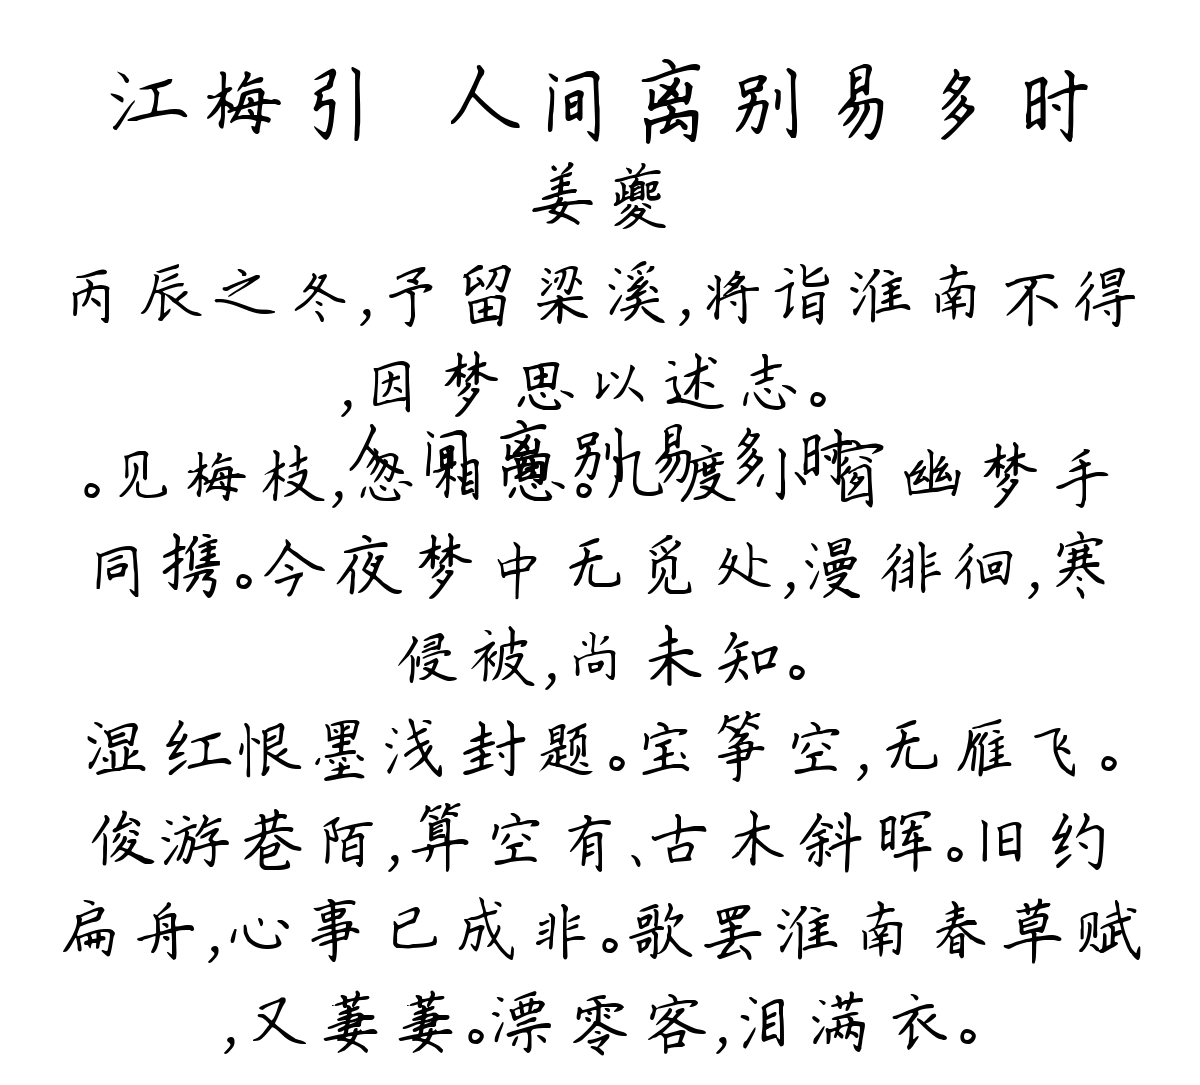 江梅引 人间离别易多时
姜夔
丙辰之冬,予留梁溪,将诣淮南不得
,因梦思以述志。
人间离别易多时
。见梅枝,忽相思。几度小窗幽梦手
同携。今夜梦中无觅处,漫徘徊,寒
侵被,尚未知。
湿红恨墨浅封题。宝筝空,无雁飞。
俊游巷陌,算空有、古木斜晖。旧约
扁舟,心事已成非。歌罢淮南春草赋
,又萋萋。漂零客,泪满衣。